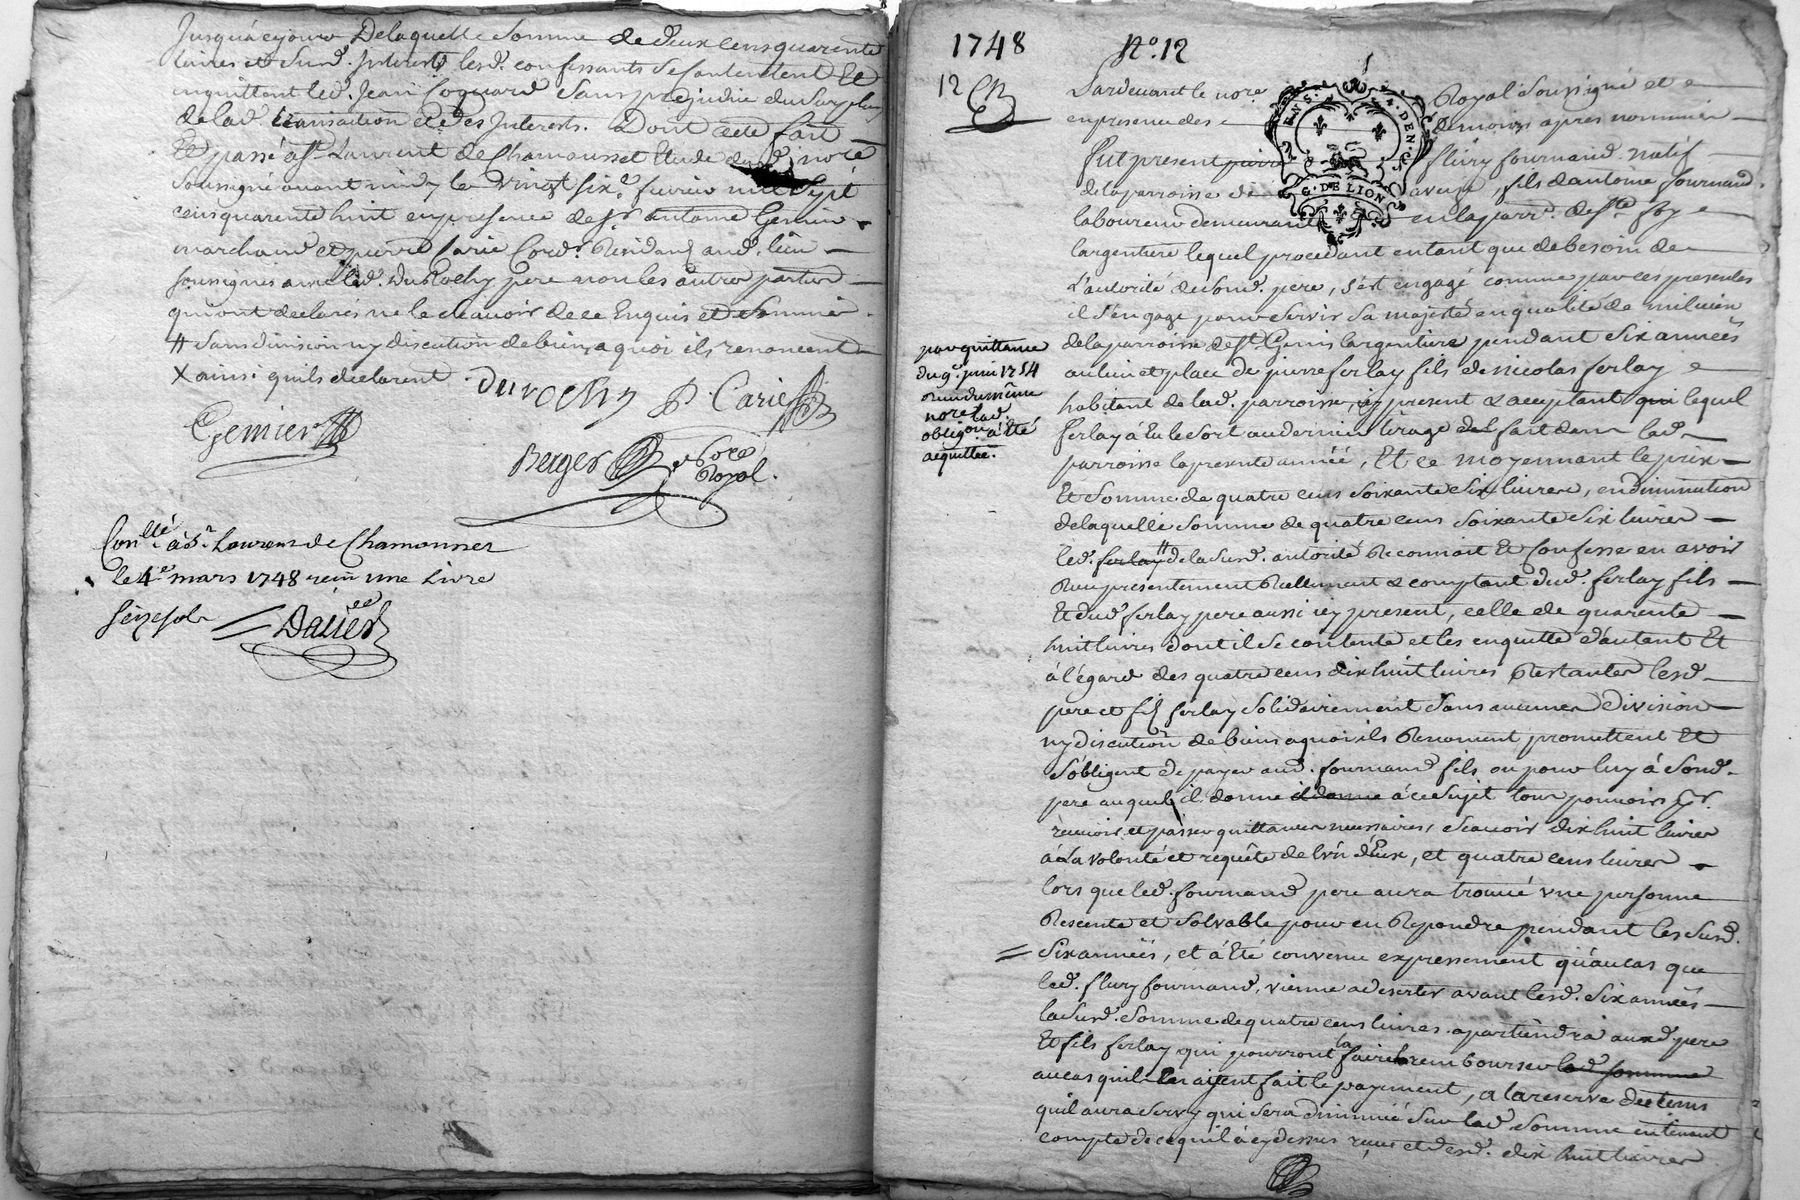 Jusqu'à ce jour Delaquelle somme de deux cens quarente
livres et susd. Interests lesd. confessants se contentent Et
enquittent led. Jean Coquard sans prejudice du surplus
de lad. transaction et des Interests. Dont acte fait
Et passé a St. Laurent de Chamousset Etude dud. nore
soussigné avant midy le vingt six.e fevrier mil sept
cens quarente huit en presence de sr. antoine Gemier
marchand et pierre Carie Cord.r Residans aud. lieu
soussignés avec led. Durochy pere non les autres parties
qui ont declarés ne le scavoir de ce Enquis et sommés.
# sans division ny discution de biens a quoi ils renoncent
X ainsi qu'ils declarent
Durochy P. Carie
Gemier
Berger Nore Royal.
Con.llé à St. Laurens de Chamousset
le 4.e mars 1748 reçu une Livre
seize sols
Daviet
1748 No. 12
12
Pardevant le nore Royal soussigné et
en presence des temoins apres nommés
fut present fleury fournand natif
de la parroisse de aveize, fils d'antoine fournand
laboureur demeurant en la parr. de ste. foy
largentiere lequel procedant entant que de besoin de
L'autorité de sond. pere, s'est engagé comme par ces presentes
il s'engage pour servir sa majesté en qualité de milicien
de la parroisse de st. Genis largentiere pendant six années
au lieu et place de pierre ferlay fils de nicolas ferlay
habitant de lad. parroisse, icy present & acceptant qui lequel
ferlay à Eu le sort au dernier tirage fait dans lad.
parroisse la presente année, Et ce moyennant le prix
Et somme de quatre cens soixante six livres, en diminution
de laquelle somme de quatre cens soixante six livres
led. ferlay # de la susd. autorité Reconnoit Et Confesse en avoir
Reçu presentement Reellement & comptant dud. ferlay fils
Et dud. ferlay pere aussi icy present, celle de quarente
huit livres dont il se contente et les enquitte d'autant Et
à l'égard des quatre cens dix huit livres Restantes lesd.
pere et fils ferlay solidairement sans aucune Division
ny discution de biens a quoi ils Renoncent promettent Et
s'obligent de payer aud. fournand fils ou pour luy à sond.
pere auquel il donne il donne à ce sujet tous pouvoirs pr.
recevoir et passer quittances necessaires, scavoir dix huit livres
à La volonté et requête de l'un d'Eux, et quatre cens livres
lors que led. fournand pere aura trouvé une personne
Rescente et solvable pour en Repondre pendant les susd.
six années, et à Eté convenu expressement qu'au cas que
led. fleury fournand, vienne a deserter avant lesd. six années
la susd. somme de quatre cens livres apartiendra auxd. pere
Et fils ferlay qui pourront la faire rembourser lad. somme
au cas qu'ils en aïent fait le payement, a la reserve du tems
qu'il aura servy qui sera diminué sur lad. somme en tenant
compte de ce qu'il à cy dessus reçu et desd. dix huit livres
par quittance
du 9e. juin 1754
Reçue du même
nore lad.
obligon. à Eté
acquittée.
G. DE LION